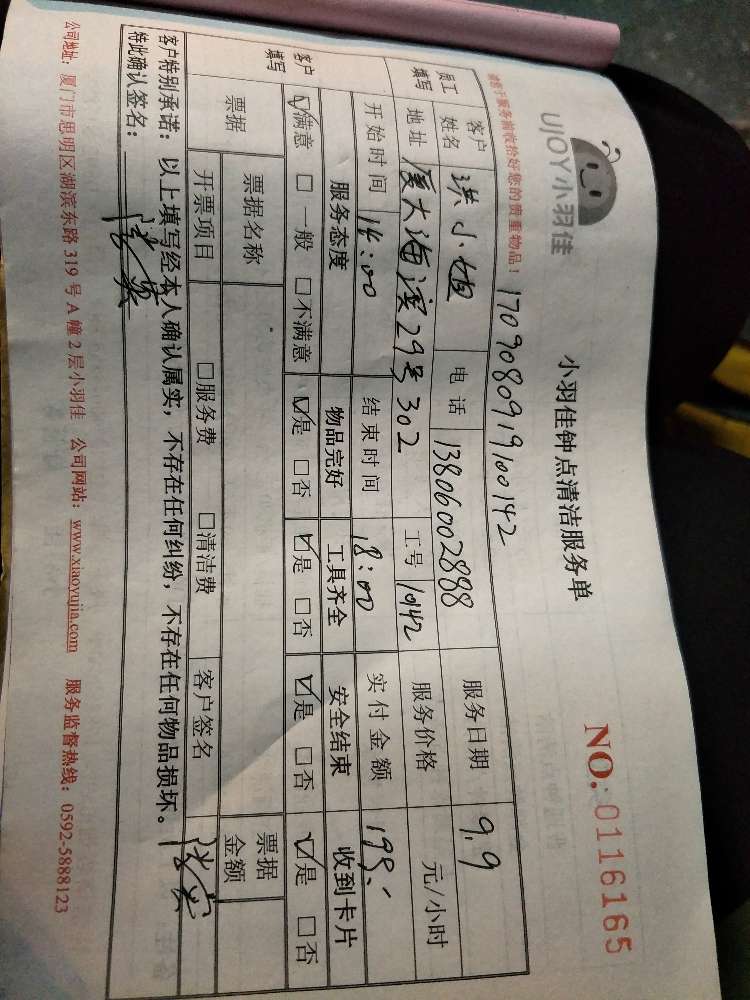 UJOY小羽佳
小羽佳钟点清洁服务单
NO.0116165
请客于服务前收拾好您的贵重物品！
1709080919100142
员工填写
客户姓名 洪小姐 电话 13806002888 服务日期 9.9
地址 厦大海滨29号302 工号 10142 服务价格 元/小时
开始时间 14:00 结束时间 18:00 实付金额 198.
客户填写
服务态度 物品完好 工具齐全 安全结束 收到卡片
☑满意 □一般 □不满意 ☑是 □否 ☑是 □否 ☑是 □否 ☑是 □否
票据 票据名称 票据金额
开票项目 □服务费 □清洁费 客户签名
客户特别承诺：以上填写经本人确认属实，不存在任何纠纷，不存在任何物品损坏。
特此确认签名：
公司地址：厦门市思明区湖滨东路 319 号 A 幢 2 层小羽佳 公司网站：www.xiaoyujia.com 服务监督热线：0592-5888123